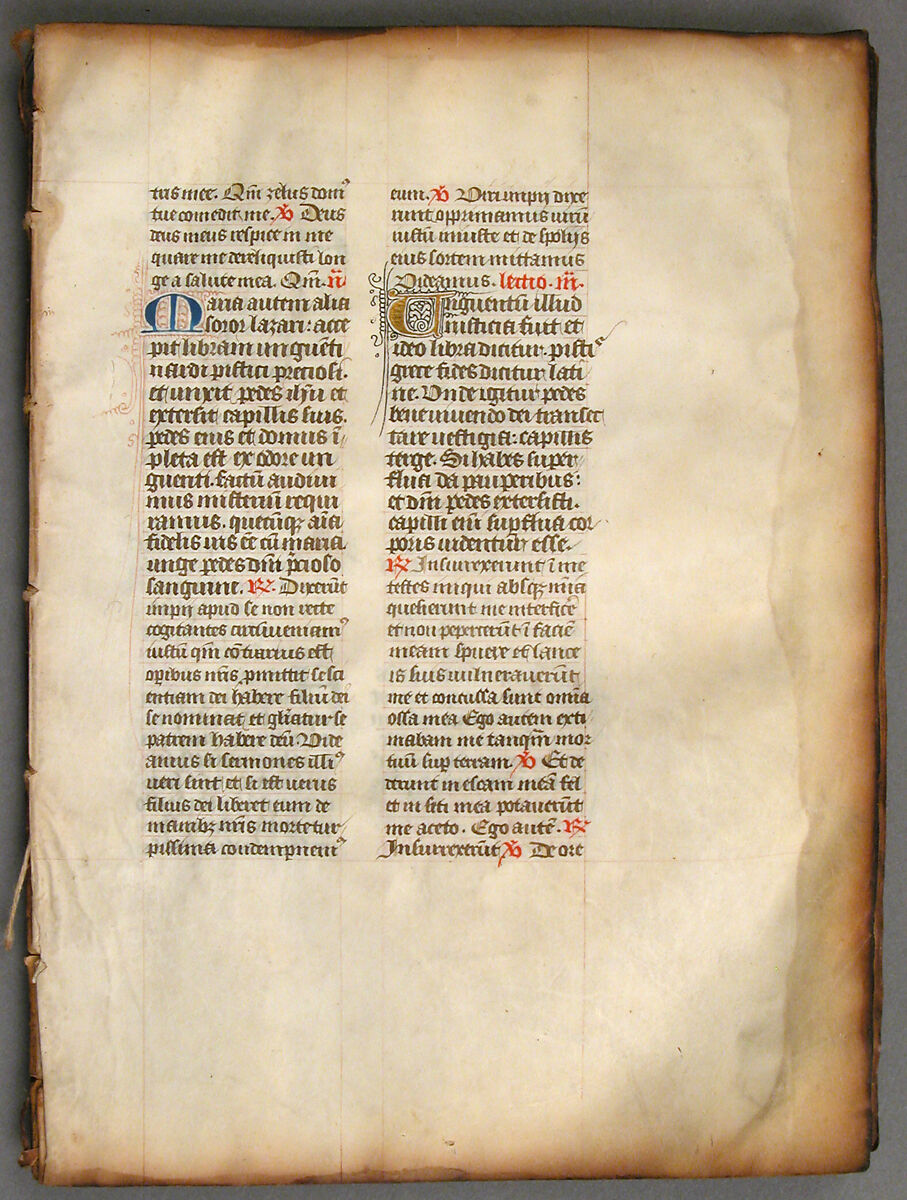 tris mee. Qm̄ zelus domꝰ
tue comedit me. ℣ Deus
deus meus respice in me
quare me dereliquisti lon
ge a salute mea. Qm̄. ii̅
Maria autem alia
soror lazari: acce
pit libram unguēti
nardi pistici preciosi.
et unxit pedes ihu̅ et
extersit capillis suis.
pedes eius et domus ī
pleta est ex odore un
guenti. factū audiui
mus misteriū requi
ramus. quecūqꝫ aīa
fidelis uis eē cū maria
unge pedes dn̄i p̄cioso
sanguine. ℟. Dixerūt
impij apud se non recte
cogitantes circūueniamꝰ
iustū qm̄ cōtrarius est
oꝑibus nr̄is ꝓmittit se sci
entiam dei habere filiū dei
se nominat et gl̄iatur se
patrem habere deū. Vide
amus si sermones ill̄iꝰ
ueri sint et si est uerus
filius dei liberet eum de
manibꝫ nr̄is morte tur
pissima condempnemꝰ
eum. ℣ Viri impij dixe
runt opprimamus uirū
iustū iniuste et de spolijs
eius sortem mittamus
Videamus. lectio. iii̅.
Unguentū illud
iusticia fuit et
ideo libra dicitur. pistiꝰ
grece fides dicitur lati
ne. Unde igitur pedes
bene uiuendo dei transec
tare uestigia: capillis
terge. Si habes super
flua da pauperibus:
et dn̄i pedes extersisti.
capilli enī suꝑflua cor
poris uidentur esse.
℟. Insurrexerunt ī me
testes iniqui absqꝫ mīa
quesierunt me interficere
et non pepercerūt ī faciē
meam spuere et lance
is suis uulnerauerūt
me et concussa sunt omīa
ossa mea Ego autem exti
mabam me tanqm̄ mor
tuū suꝑ terram. ℣ Et de
derunt in escam meā fel
et in siti mea potauerūt
me aceto. Ego autē. ℟
Insurrexerūt ℣ De ore